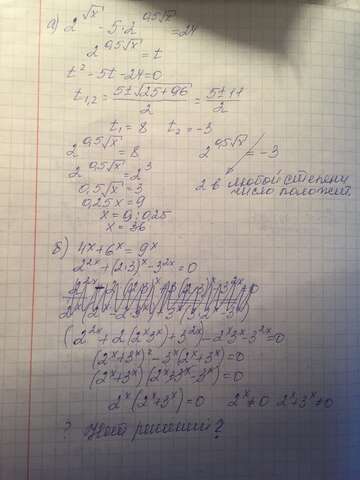 а) 2^√x - 5·2^0,5√x = 24
2^0,5√x = t
t² - 5t - 24 = 0
t₁,₂ = (5±√(25+96))/2 = (5±11)/2
t₁ = 8 t₂ = -3
2^0,5√x = 8 2^0,5√x = -3
2^0,5√x = 2³ 2 в любой степени
0,5√x = 3 число положит.
0,25x = 9
x = 9 : 0,25
x = 36
б) 4^x + 6^x = 9^x
2^2x + (2·3)^x - 3^2x = 0
(2^2x + 2(2^x3^x) + 3^2x) - 2^x3^x - 3^2x = 0
(2^x+3^x)² - 3^x(2^x+3^x) = 0
(2^x+3^x)(2^x+3^x-3^x) = 0
2^x(2^x+3^x) = 0 2^x≠0 2^x+3^x≠0
? Нет решений?